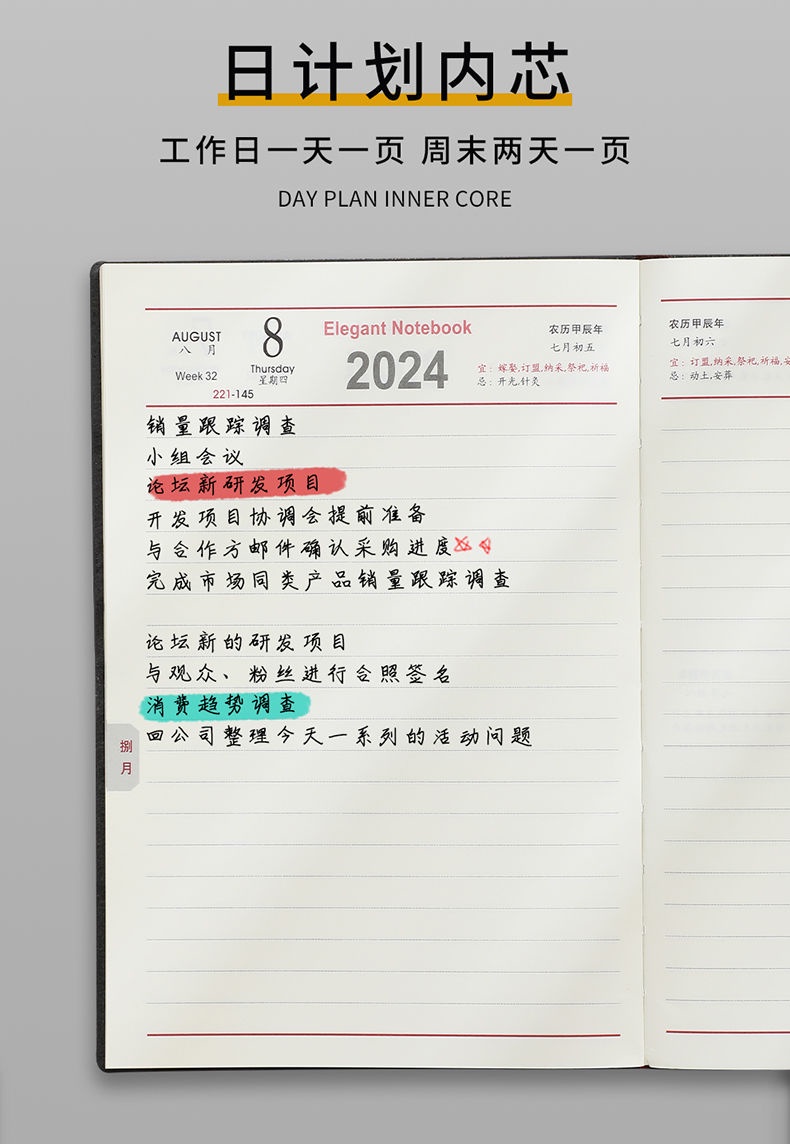 日计划内芯
工作日一天一页 周末两天一页
DAY PLAN INNER CORE
AUGUST
八 月
Week 32
8
Thursday
星期四
221-145
Elegant Notebook
2024
农历甲辰年
七月初五
宜: 嫁娶,订盟,纳采,祭祀,祈福
忌: 开光,针灸
销量跟踪调查
小组会议
论坛新研发项目
开发项目协调会提前准备
与合作方邮件确认采购进度
完成市场同类产品销量跟踪调查
论坛新的研发项目
与观众、粉丝进行合照签名
消费趋势调查
回公司整理今天一系列的活动问题
捌
月
农历甲辰年
七月初六
宜: 订盟,纳采,祭祀,祈福,安
忌: 动土,安葬